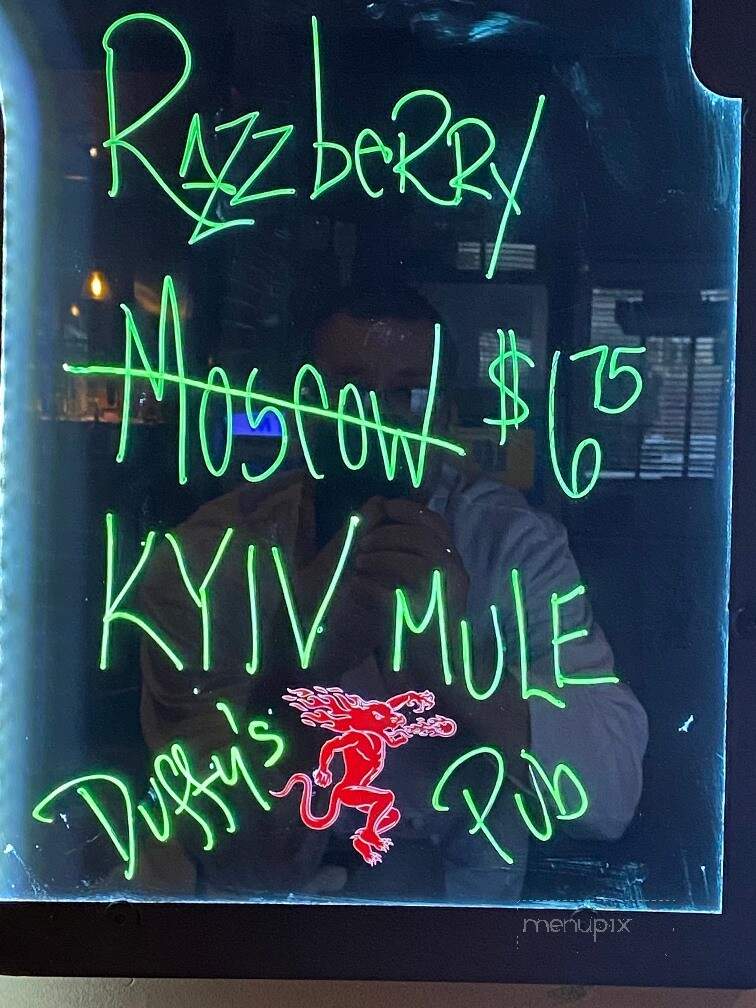 Razzberry
Moscow $6 75
KYIV MULE
Duffy's Pub
menupix